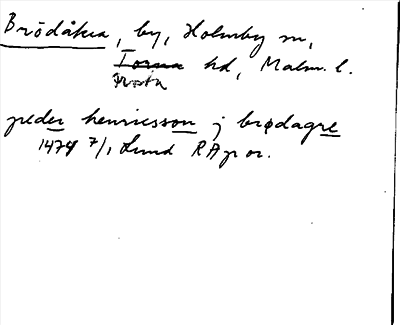 Brödåkra, by, Holmby sn,
Torna hd, Malm. l.
Frosta
peder henricsson j brødagre
1474 7/1 Lund RAp or.